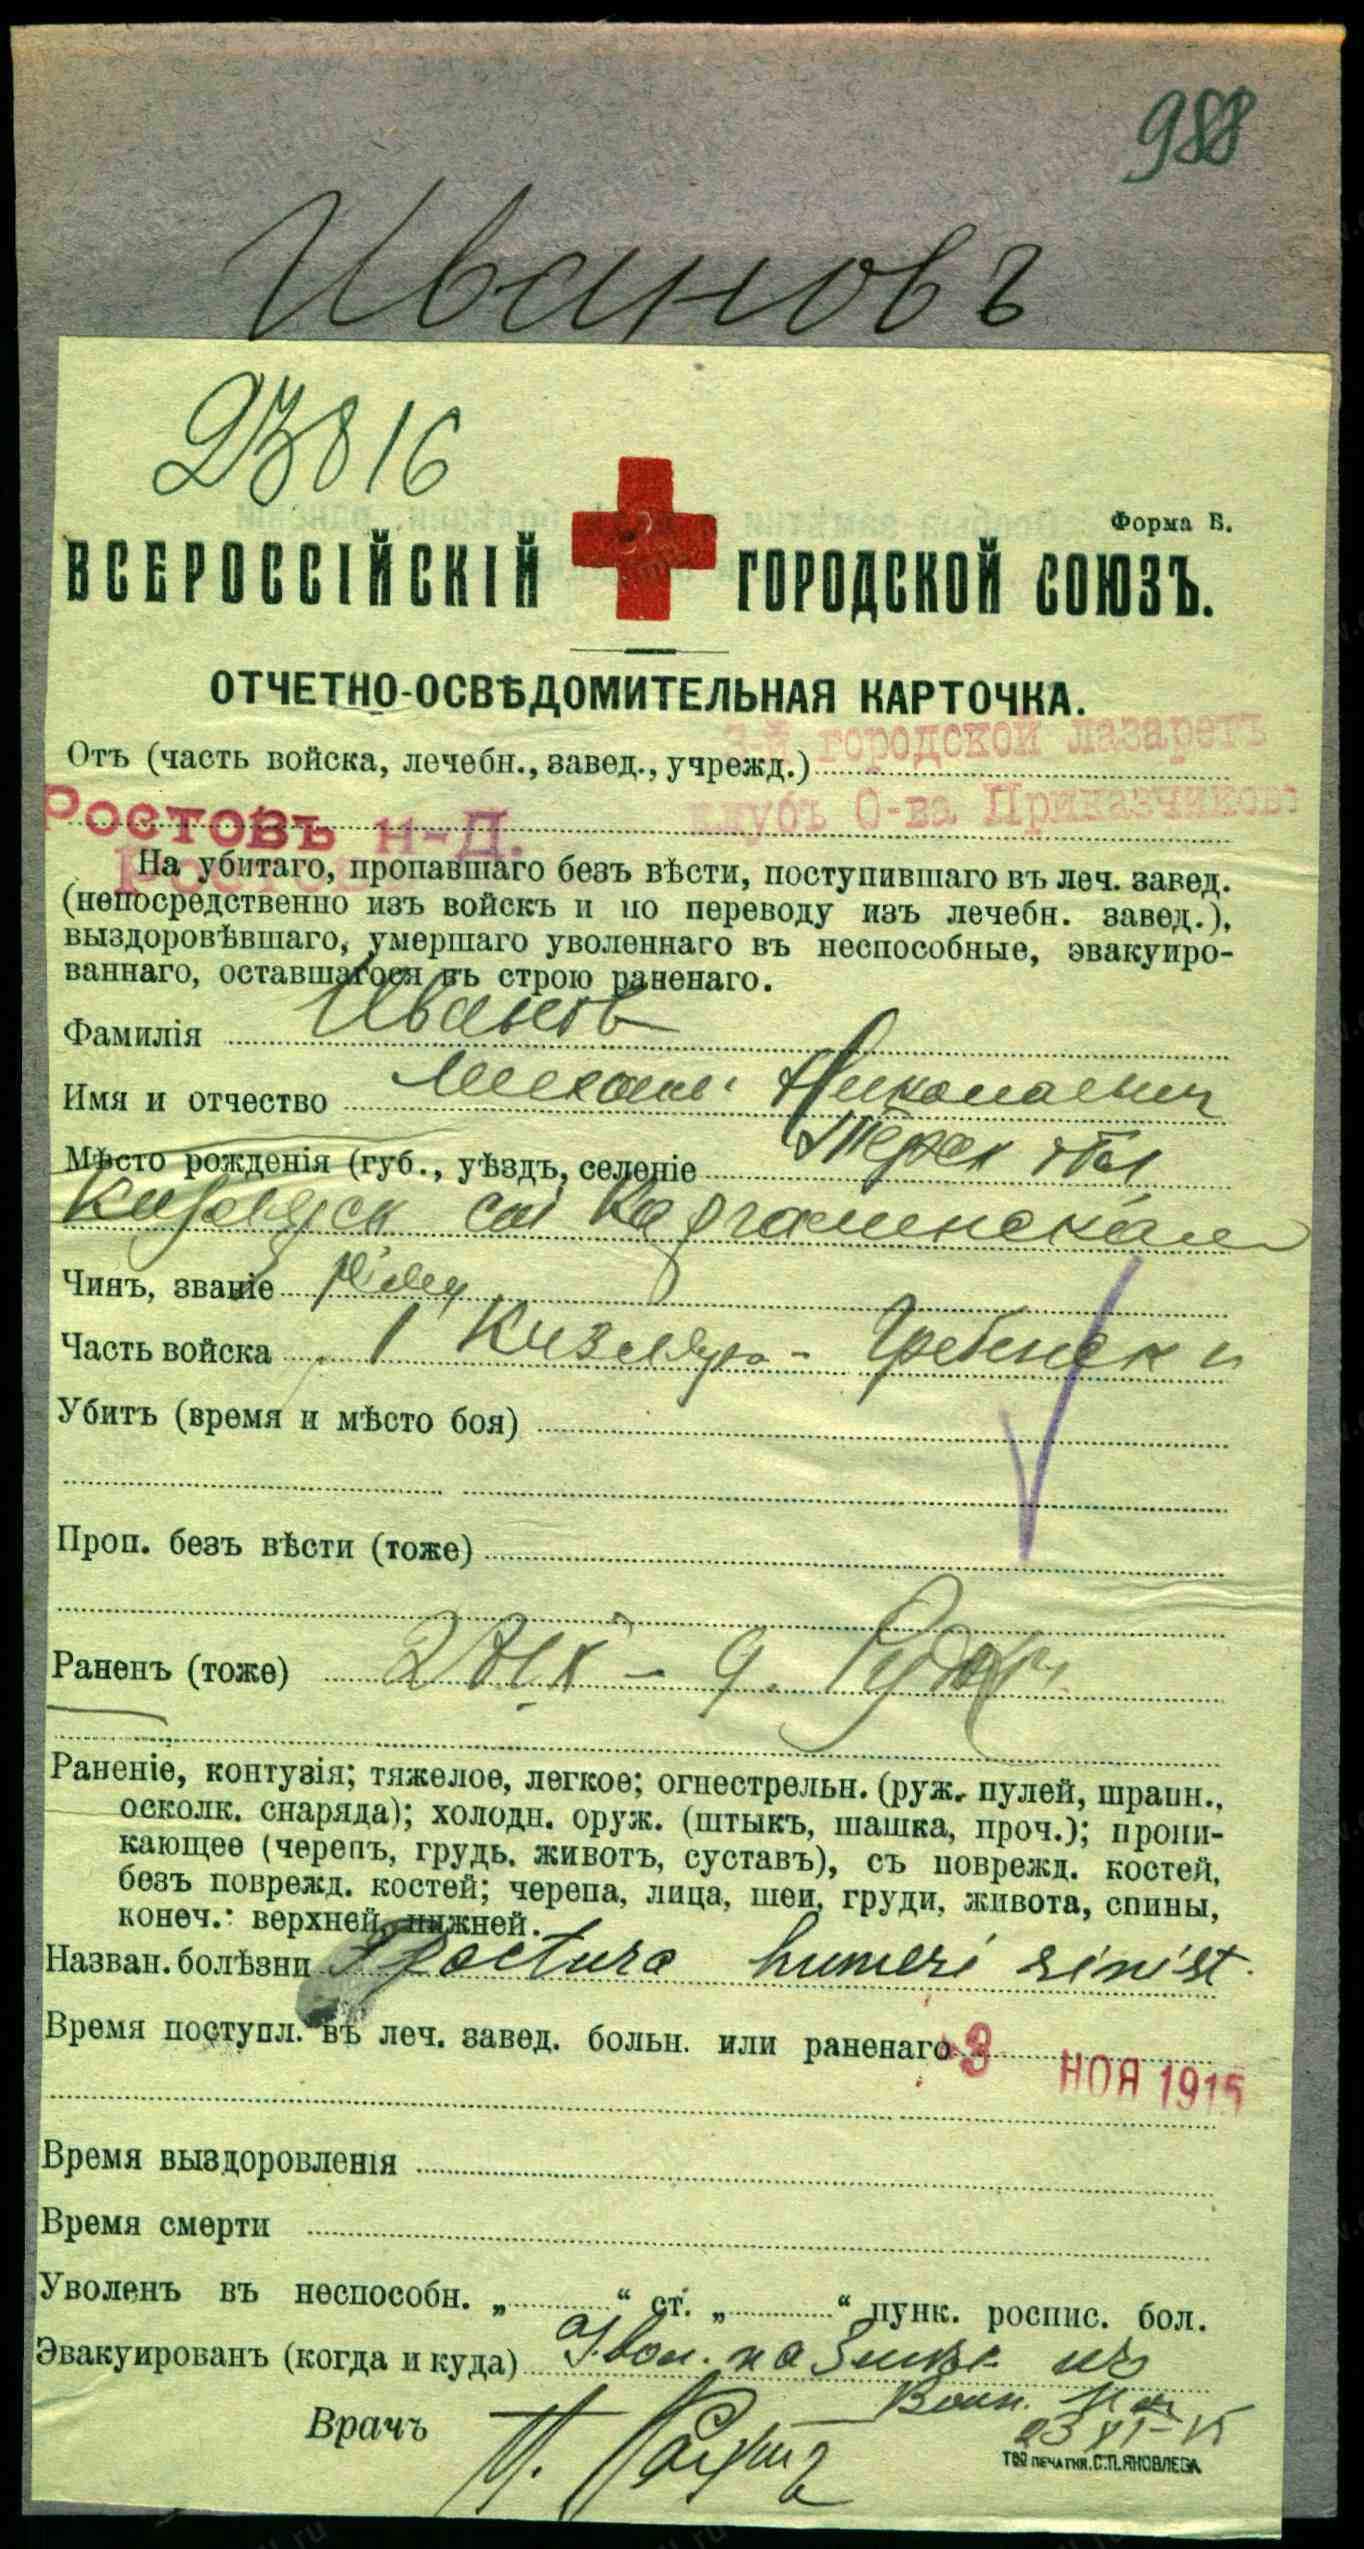 988
Ивановъ
23816
Форма Б.
ВСЕРОССІЙСКІЙ ГОРОДСКОЙ СОЮЗЪ.
ОТЧЕТНО-ОСВѢДОМИТЕЛЬНАЯ КАРТОЧКА.
3-й городской лазаретъ
Отъ (часть войска, лечебн., завед., учрежд.)
клубъ О-ва Приказчиковъ
Ростовъ н-Д.
На убитаго, пропавшаго безъ вѣсти, поступившаго въ леч. завед.
(непосредственно изъ войскъ и по переводу изъ лечебн. завед.),
выздоровѣвшаго, умершаго уволеннаго въ неспособные, эвакуиро-
ваннаго, оставшагося въ строю раненаго.
Фамилія Иванов
Имя и отчество Михаилъ Николаевич
Мѣсто рожденія (губ., уѣздъ, селеніе Терск обл
Кизлярск ст Каргалинская
Чинъ, званіе
Часть войска 1 Кизляро-Гребенск п
Убитъ (время и мѣсто боя)
Проп. безъ вѣсти (тоже)
Раненъ (тоже)
Раненіе, контузія; тяжелое, легкое; огнестрельн. (руж. пулей, шрапн.,
осколк. снаряда); холодн. оруж. (штыкъ, шашка, проч.); прони-
кающее (черепъ, грудь, животъ, суставъ), съ поврежд. костей,
безъ поврежд. костей; черепа, лица, шеи, груди, живота, спины,
конеч.: верхней, нижней.
Назван. болѣзни Fractura humeri sinist.
Время поступл. въ леч. завед. больн. или раненаго 3 НОЯ 1915
Время выздоровленія
Время смерти
Уволенъ въ неспособн. „ “ ст. „ “ пунк. роспис. бол.
Эвакуированъ (когда и куда)
23 XI-15
Врачъ
Тво ПЕЧАТНЯ. С.П. ЯКОВЛЕВА